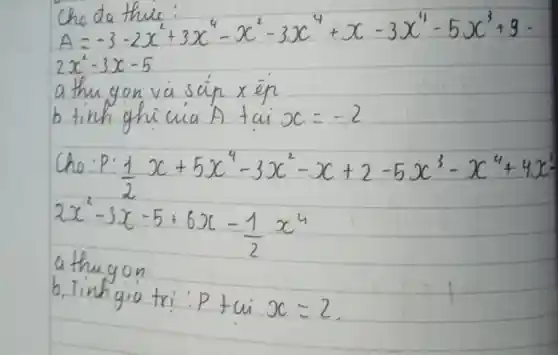 Cho đa thức:
A = -3 - 2x² + 3x⁴ - x² - 3x⁴ + x - 3x⁴ - 5x³ + 9 -
2x² - 3x - 5
a thu gọn và sắp xếp
b tính ghi của A tại x = -2
Cho: P: 1/2 x + 5x⁴ - 3x² - x + 2 - 5x³ - x⁴ + 4x
2x² - 3x - 5 + 6x - 1/2 x⁴
a thu gọn
b, Tính giá trị: P tại x = 2.